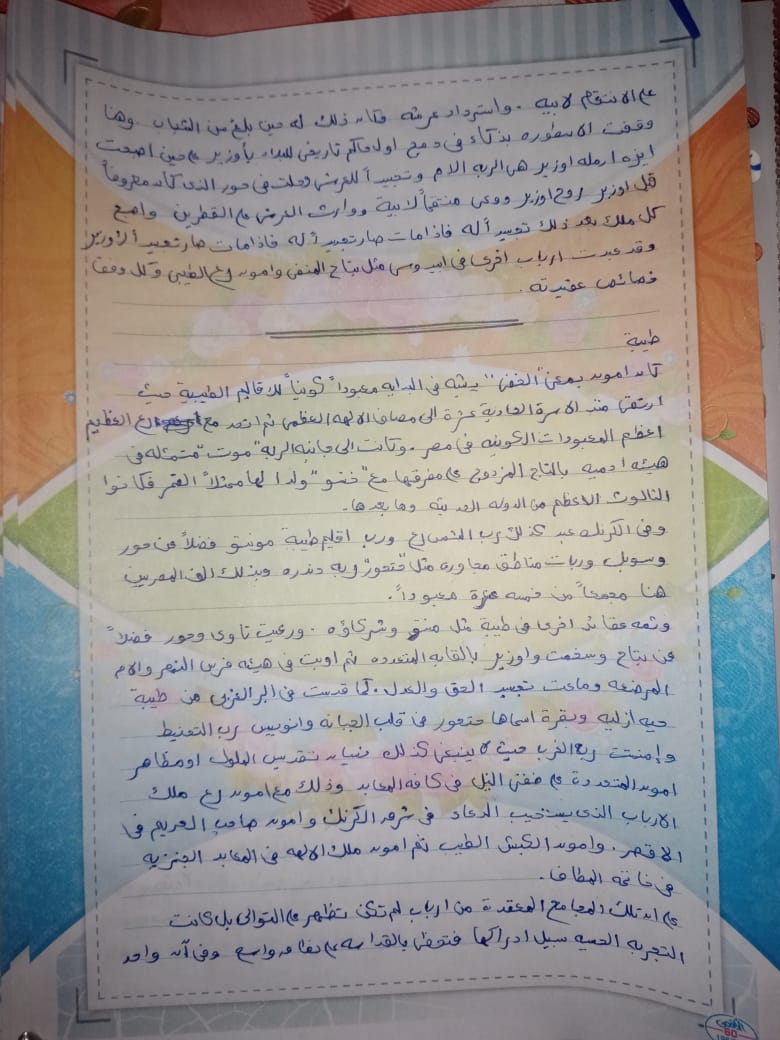 على الانتقام لابيه . واسترداد عرشه فكان ذلك له حين بلغ من الشباب وهنا
وقفت الاسطوره بذكاء فى دمج اول حاكم تاريخى للبلاد بأوزير على حين اصبحت
ايزه ارمله اوزير هى الربه الام وتجسيد أ للعرش وحلت فى حور الذى كان معروفاً
قبل اوزير روح اوزير ووعى منتقماً لابية ووارث العرش على القطرين واصبح
كل ملك بعد ذلك تجسيد أ له فاذا مات صار تجسيد أ له فاذا مات صار تجسيد ألاوزير
وقد عبدت ارباب اخرى فى ابيدوس مثل بتاح المنفى وامون رع الطيبى وكل وفقا
خصائص عقيدته .
طيبة
كان امون بمعنى "الخفى" يدثيه فى البدايه معبوداً كونياً لاقاليم الطيبية حيث
ارتقى منذ الاسرة الحادية عشرة الى مصاف الالهه العظمى ثم اتحد مع رع العظيم
اعظم المعبودات الكونيه فى مصر . وكانت الى جانبه الربه "موت" متمثله فى
هيئه ادميه بالتاج المزدوج على مفرقها مع "خنسو" ولدا لها ممثلاً القمر فكانوا
الثالوث الاعظم من الدوله الحديثه وما بعدها .
وفى الكرنك عبد كذلك رب الشمس رع ورب اقليم طيبة مونتو فضلاً عن حور
وسوبك وربات مناطق مجاوره مثل "حتحور" ربه دندره وبذلك الف المصريين
هنا مجمعاً من خمسه عشرة معبوداً .
وثمه عقائد اخرى فى طيبة مثل منتو وشركاؤه . ورعيت تاوى وحور فضلاً
عن بتاح وسخمت واوزير بالقابه المتعدده ثم اوبت فى هيئه فرس النهر والام
المرضعه وماعت تجسيد الحق والعدل . كما قدست فى البر الغربى من طيبة
حيه ازليه وبقرة اسماها حتحور فى قلب الجبانه وانوبيس رب التحنيط
وإمنتت ربه الغرب حيث لاينبغى كذلك نسيان تقديس الملوك او مظاهر
امون المتعددة على ضفتى النيل فى كافه المعابد وذلك مع امون رع ملك
الارباب الذى يستجيب الدعاء فى شرق الكرنك وامون صاحب الحريم فى
الاقصر . وامون الكبش الطيب ثم امون ملك الالهه فى المعابد الجنزيه
فى خاتمه المطاف .
على ان تلك المجامع المعقدة من ارباب لم تكن تظهر على التوالى بل كانت
التجربه الحسيه سبيل ادراكها فتحظى بالقداسه على نطاق واسع وفى آن واحد